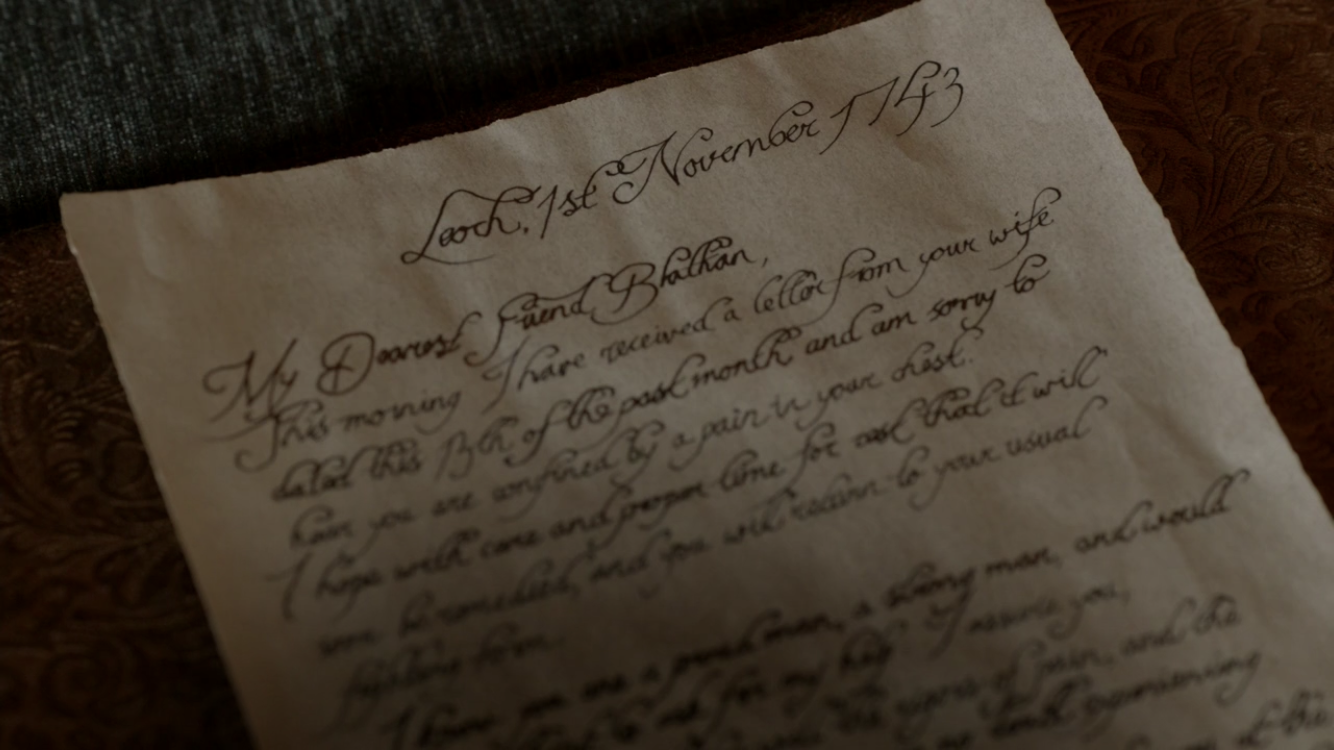 Leoch, 1st November 1743
My Dearest Friend Bhathan,
This morning I have received a letter from your wife
dated this 13th of the past month and am sorry to
hear you are confined by a pain in your chest.
I hope with care and proper time for rest that it will
soon be remedied, and you will return to your usual
fighting form.
I know you are a proud man, a strong man, and would
to ask for my help I assure you,
the signs of pain, and the
experiencing